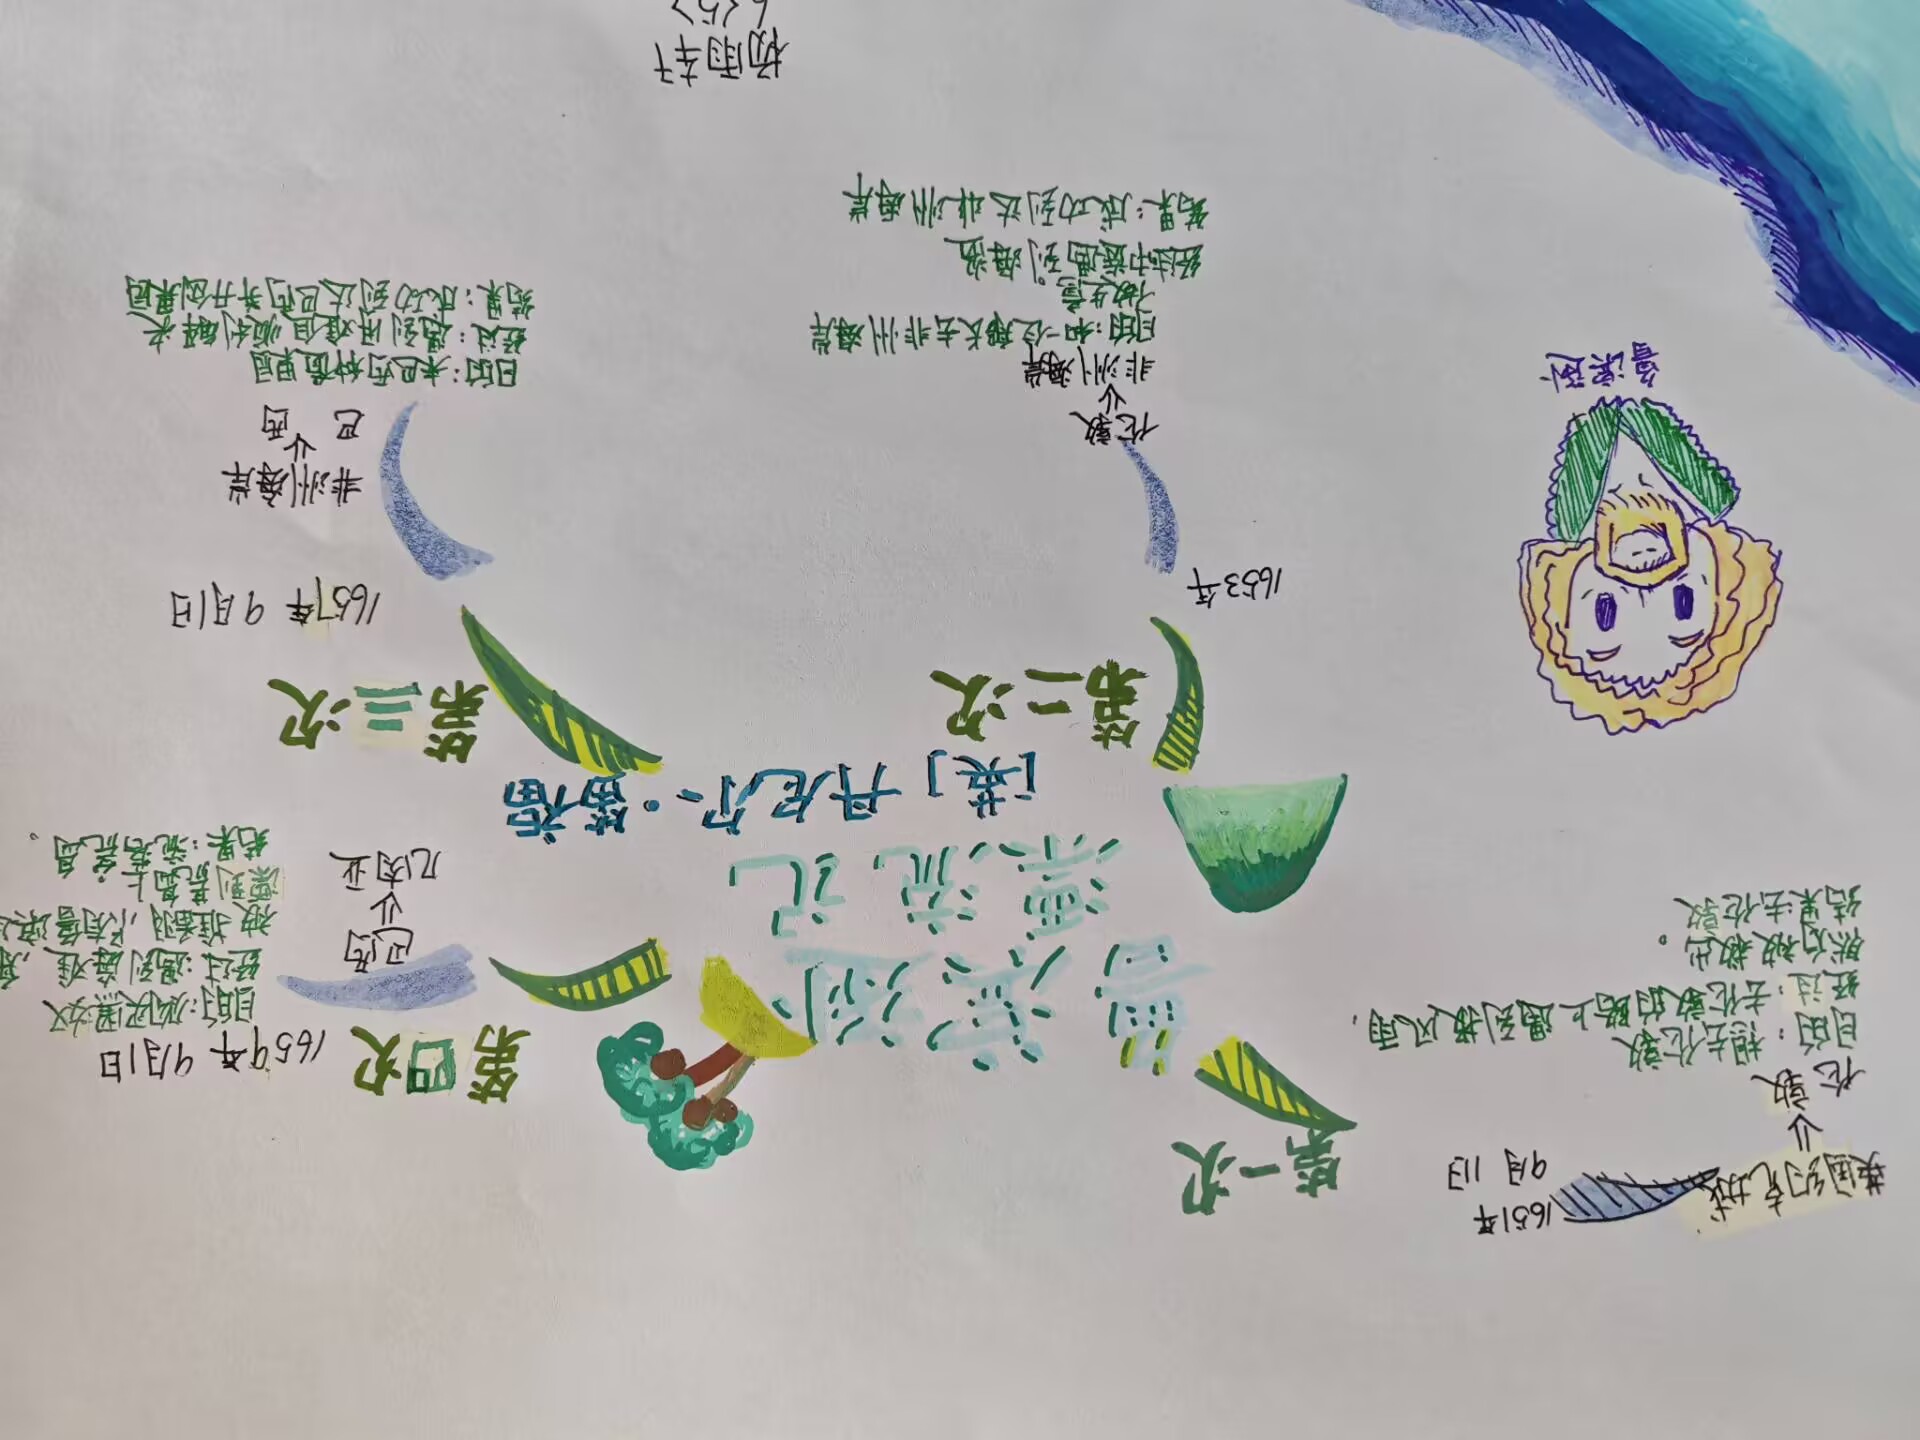 第一次
1651年
9月1日
英国约克城
⇓
伦敦
目的：想去伦敦
经过：去伦敦的路上遇到风雨，
然后被救出。
结果去伦敦
鲁滨孙
漂流记
[英]丹尼尔·笛福
第四次
1659年9月1日
巴西
⇓
几内亚
目的：购买黑奴
经过：遇到海难，
被推翻，只有鲁滨
漂到荒岛上
结果：流落荒岛。
第二次
1653年
伦敦
⇓
非洲海岸
目的：和一位船长去非洲海岸
做生意
经过中途遇到海盗。
结果：成功到达非洲海岸
第三次
1657年 9月1日
非洲海岸
⇓
巴西
目的：来巴西种植果园
经过：遇到困难但顺利解决
结果：成功到达巴西并开创果园
鲁滨孙
杨雨轩